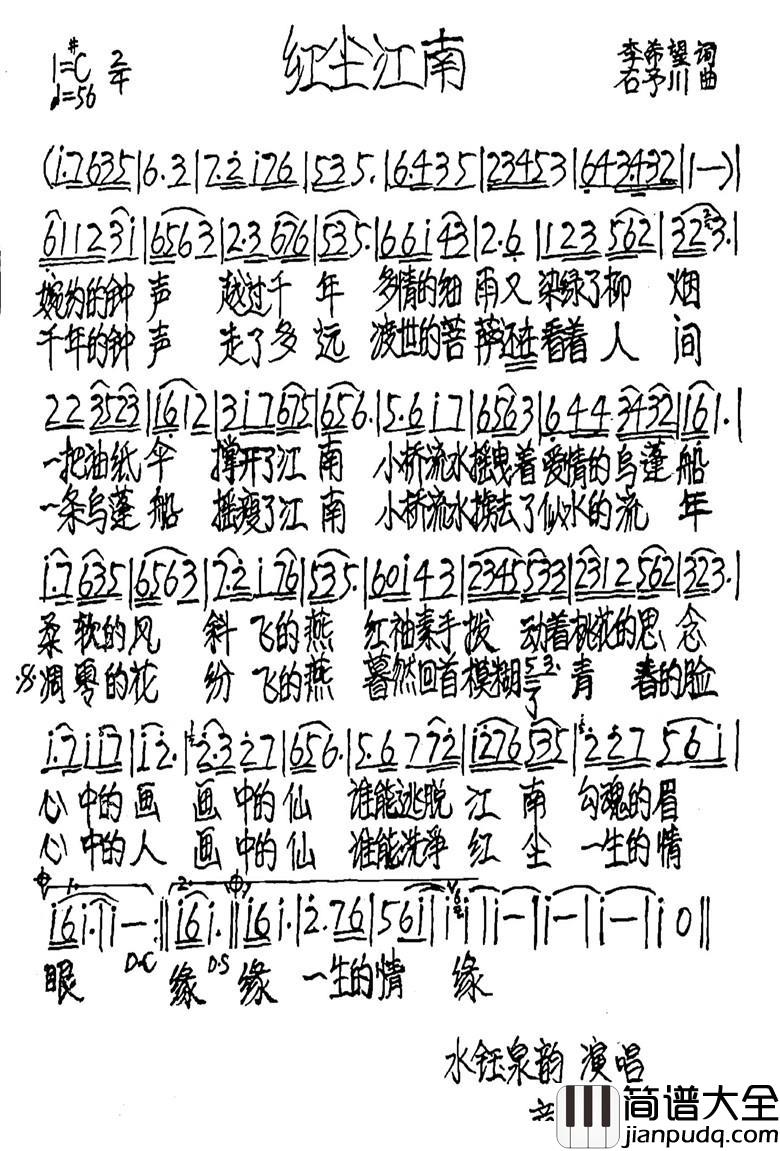 红尘江南
1=#C 2/4
♩=56
李希望 词
石予川 曲
(i·7635|6·3|7·2 i76|535·|6·435|23453|643432|1—)|
61123i|6563|2·3676|535·|66i43|2·6|123562|323·|
婉约的钟声 越过千年 多情的细雨又染绿了柳烟
千年的钟声 走了多远 渡世的菩萨还在看着人间
223523|1612|3i7675|656·|5·6i7|6563|6443432|161·|
一把油纸伞 撑开了江南 小桥流水摇曳着爱情的乌蓬船
一条乌蓬船 摇瘦了江南 小桥流水掳去了似水的流年
i·7635|6563|7·2i76|535·|60i43|2345533|2312562|323·|
柔软的风 斜飞的燕 红袖素手拨动着桃花的思念
凋零的花 纷飞的燕 蓦然回首模糊了青春的脸
i·7i i7|i2·|2·327|656·|5·6772|i276535|2·27561|
心中的画 画中的仙 谁能逃脱江南 勾魂的眉
心中的人 画中的仙 谁能洗净红尘 一生的情
1. 2.
i6i·|i—:||i6i·||i6i·|2·76|56i|i i|i—|i—|i—|i0||
D.C D.S
眼 缘 缘 一生的情 缘
水钰泉韵 演唱
简谱大全
jianpudq.com